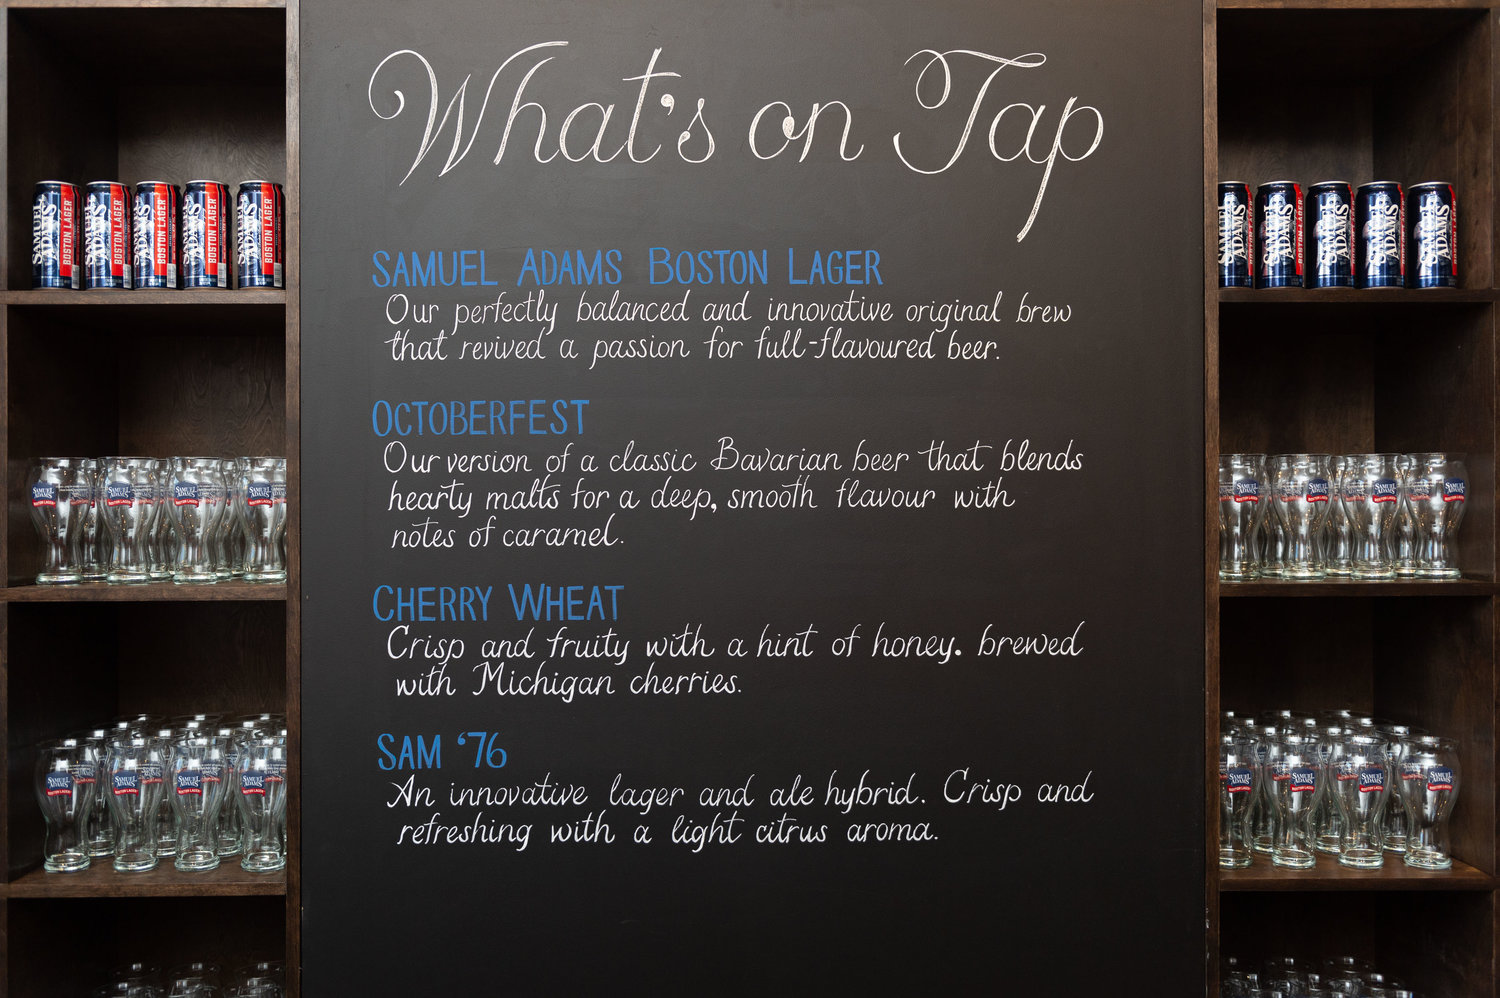 What's on Tap
SAMUEL ADAMS BOSTON LAGER
Our perfectly balanced and innovative original brew
that revived a passion for full-flavoured beer.
OCTOBERFEST
Our version of a classic Bavarian beer that blends
hearty malts for a deep, smooth flavour with
notes of caramel.
CHERRY WHEAT
Crisp and fruity with a hint of honey. brewed
with Michigan cherries.
SAM '76
An innovative lager and ale hybrid. Crisp and
refreshing with a light citrus aroma.
SAMUEL ADAMS
BOSTON LAGER